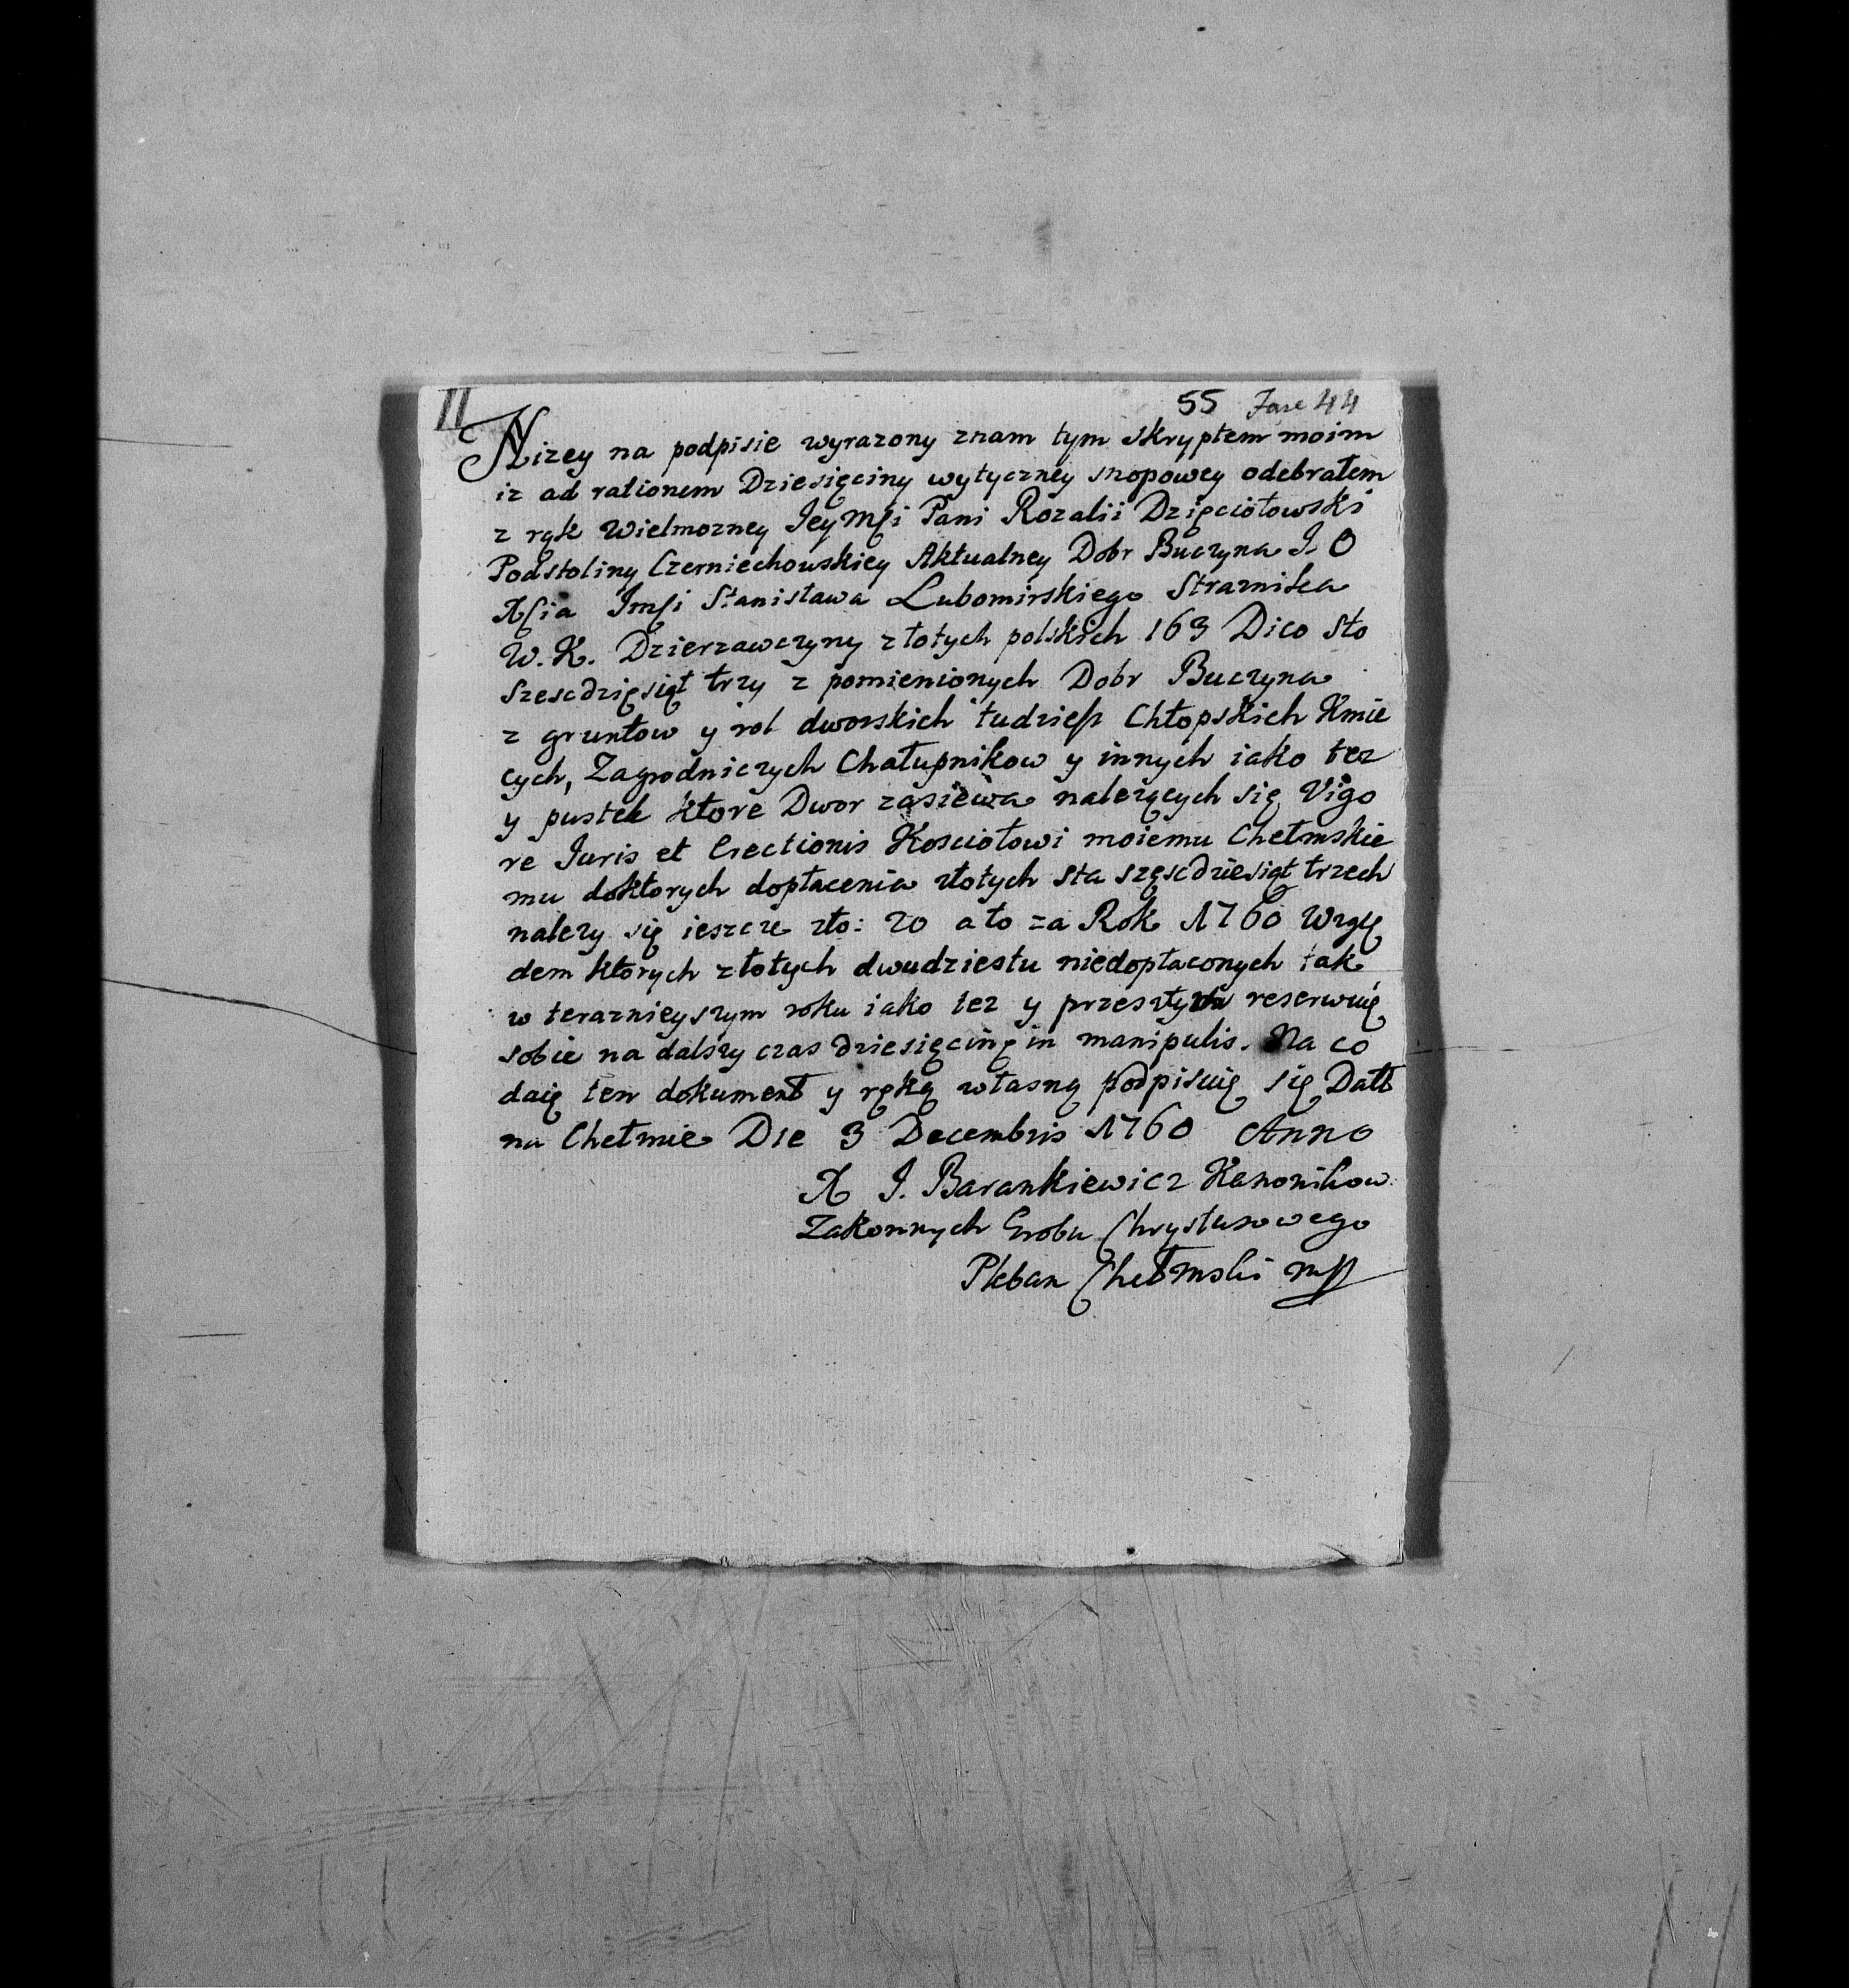 II
55 Fasc 44
Nizey na podpisie wyrazony znam tym skryptem moim
iz ad rationem Dziesięciny wytyczney snopowey odebrałem
z ręk Wielmozney Jey Mſi Pani Rozalii Dzięciołowski
Podstoliny Czerniechowskiey Aktualney Dobr Buczyna J. O
Xſia Jmſi Stanisława Lubomirskiego Straznika
W. K. Dzierzawczyny złotych polskich 163 Dico sto
szescdzięsiąt trzy z pomienionych Dobr Buczyna
z gruntow y rol dworskich tudziesz Chłopskich Kmie
cych, Zagrodniczych Chałupnikow y innych iako tez
y pustek ktore Dwor zasiewa nalezących się Vigo
re Juris et Erectionis Kosciołowi moiemu Chełmskie
mu doktorych dopłacenia złotych sta szęscdziesiąt trzech
nalezy się ieszcze zło: 20 a to za Rok 1760 Wzglę
dem ktorych złotych dwudziestu niedopłaconych tak
w teraznieyszym roku iako tez y przeszłych reserwuię
sobie na dalszy czas dziesięcinę in manipulis. Na co
daię ten dokument y ręką własną podpisuię się Datt
na Chełmie Die 3 Decembris 1760 Anno
X J. Barankiewicz Kanonikow
Zakonnych Grobu Chrystusowego
Pleban Chełmski mp